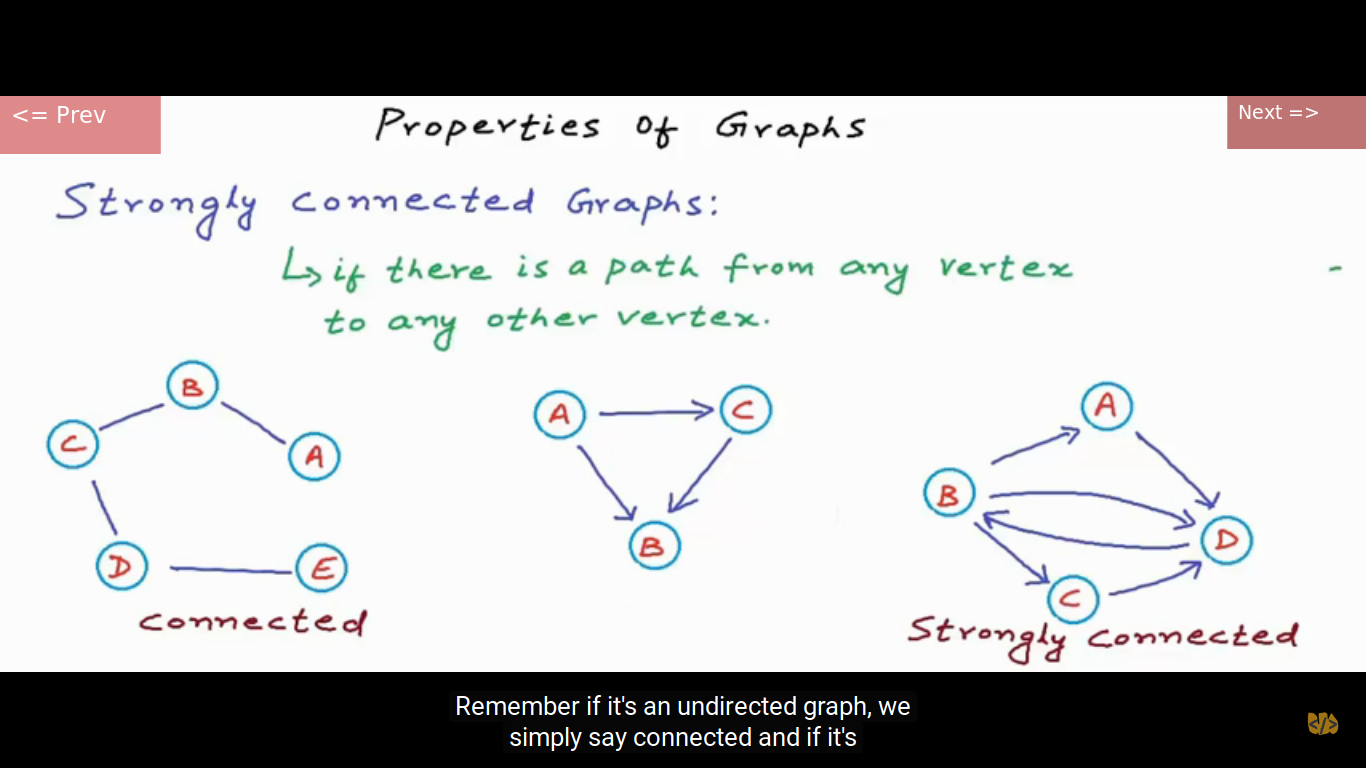 <= Prev
Properties of Graphs
Next =>
Strongly connected Graphs:
↳ if there is a path from any vertex
to any other vertex.
B
C
A
D
E
connected
A
C
B
A
B
D
C
Strongly connected
Remember if it's an undirected graph, we
simply say connected and if it's